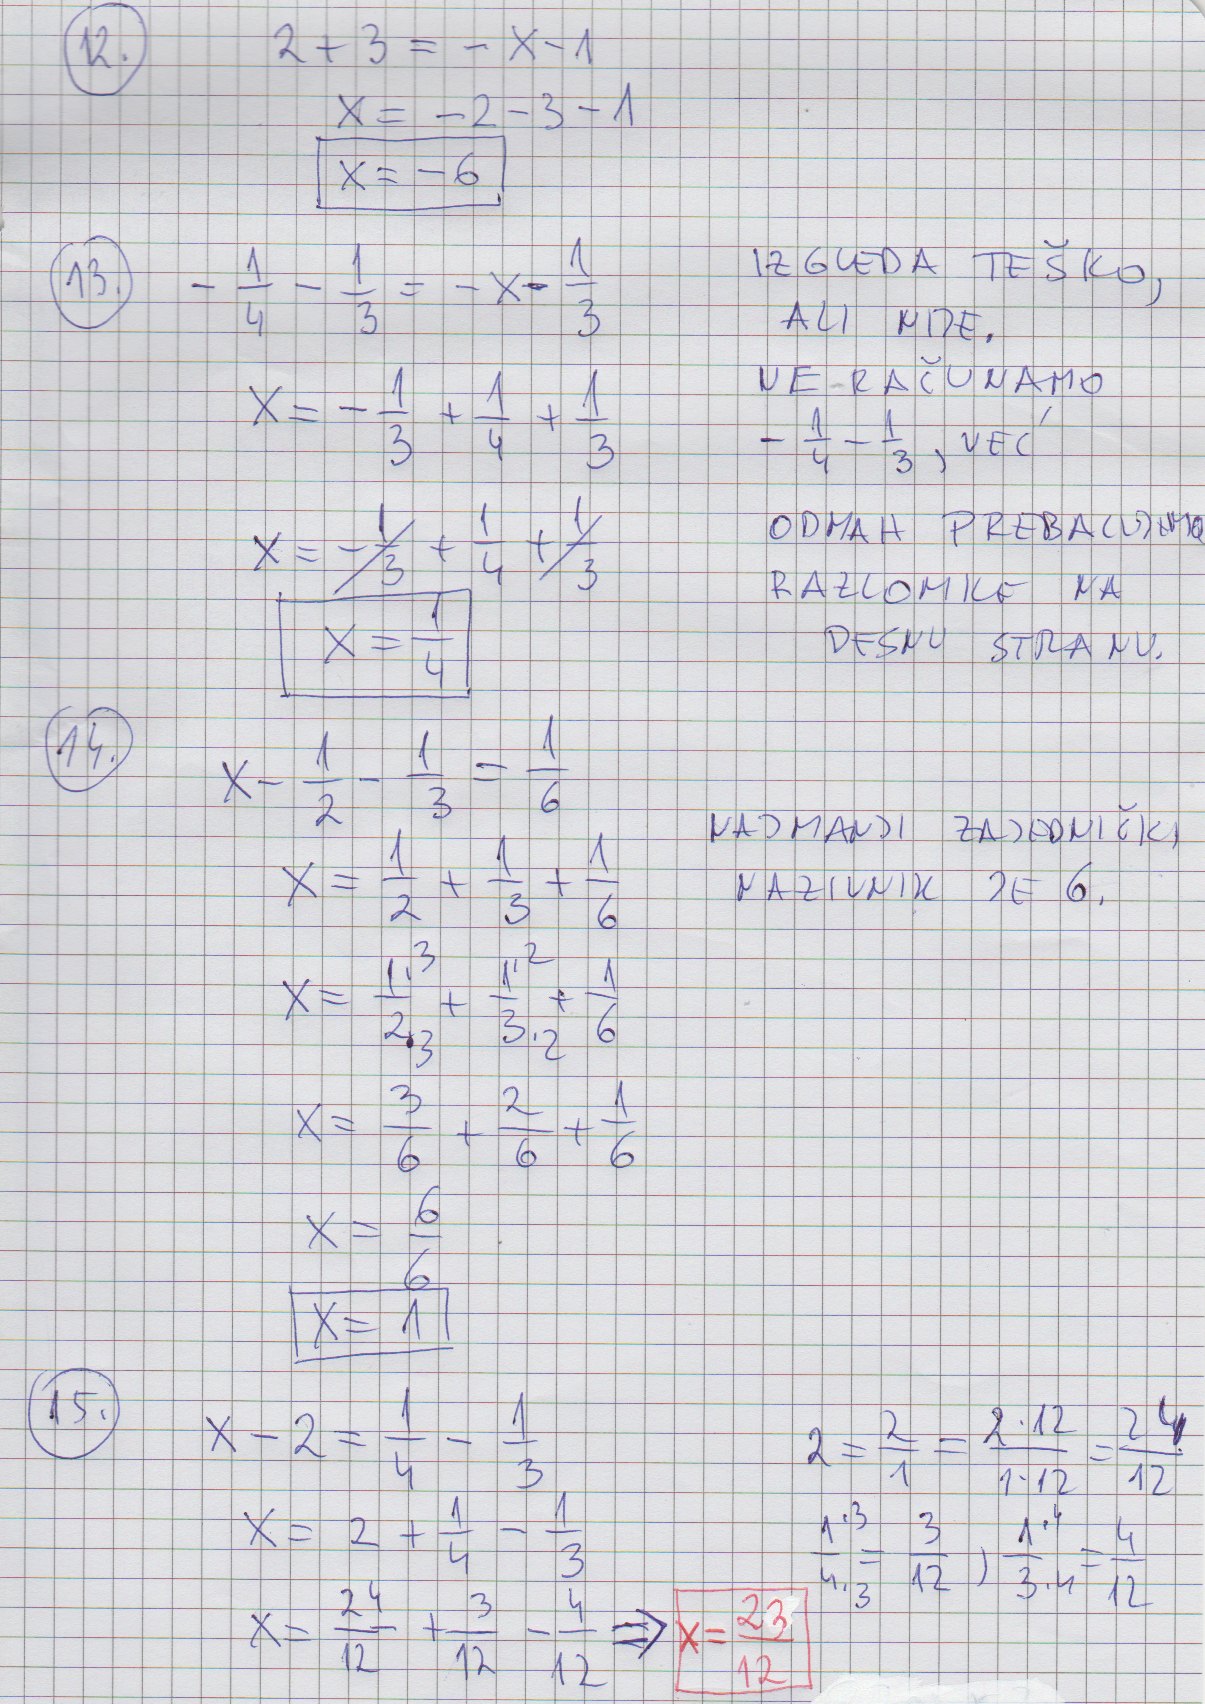 12. 2 + 3 = - x - 1
x = - 2 - 3 - 1
x = - 6
13. - 1/4 - 1/3 = - x - 1/3
x = - 1/3 + 1/4 + 1/3
x = - 1/3 + 1/4 + 1/3
x = 1/4
IZGLEDA TEŠKO,
ALI NIJE.
NE RAČUNAMO
- 1/4 - 1/3, VEĆ
ODMAH PREBACUJEMO
RAZLOMKE NA
DESNU STRANU.
14. x - 1/2 - 1/3 = 1/6
x = 1/2 + 1/3 + 1/6
x = 1·3/2·3 + 1·2/3·2 + 1/6
x = 3/6 + 2/6 + 1/6
x = 6/6
x = 1
NAJMANJI ZAJEDNIČKI
NAZIVNIK JE 6.
15. x - 2 = 1/4 - 1/3
x = 2 + 1/4 - 1/3
x = 24/12 + 3/12 - 4/12 ⇒ x = 23/12
2 = 2/1 = 2·12/1·12 = 24/12
1·3/4·3 = 3/12, 1·4/3·4 = 4/12